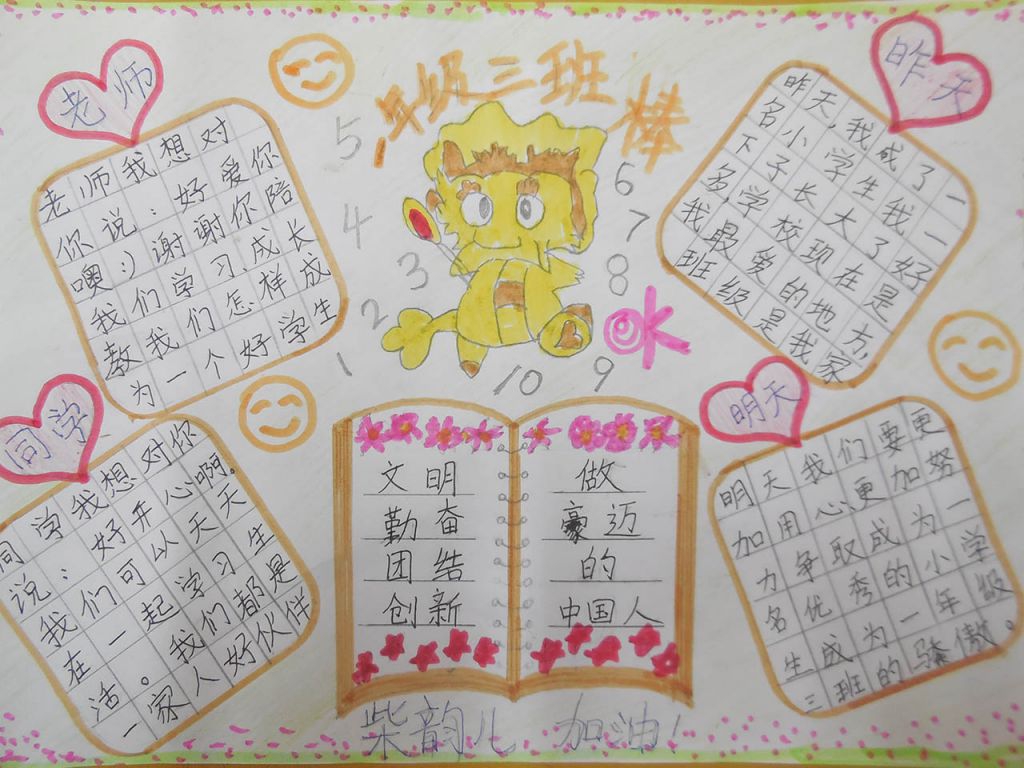 一年级三班 棒
老师
老师我想对
你说：好爱你
噢:)谢谢你陪
我们学习、成长
教我们怎样成
为一个好学生
昨天
昨天,我成了一
名小学生我一
下子长大了好
多,学校现在是
我最爱的地方,
班级是我家
5
4
3
2
1
6
7
8
9
10
OK
同学
同学我想对你
说：好开心啊。
我们可以天天
在一起学习生
活。我们都是
一家人好伙伴
文明
勤奋
团结
创新
做
豪迈
的
中国人
明天
明天我们要更
加用心、更加努
力争取成为一
名优秀的小学
生成为一年级
三班的骄傲。
柴韵儿 加油!